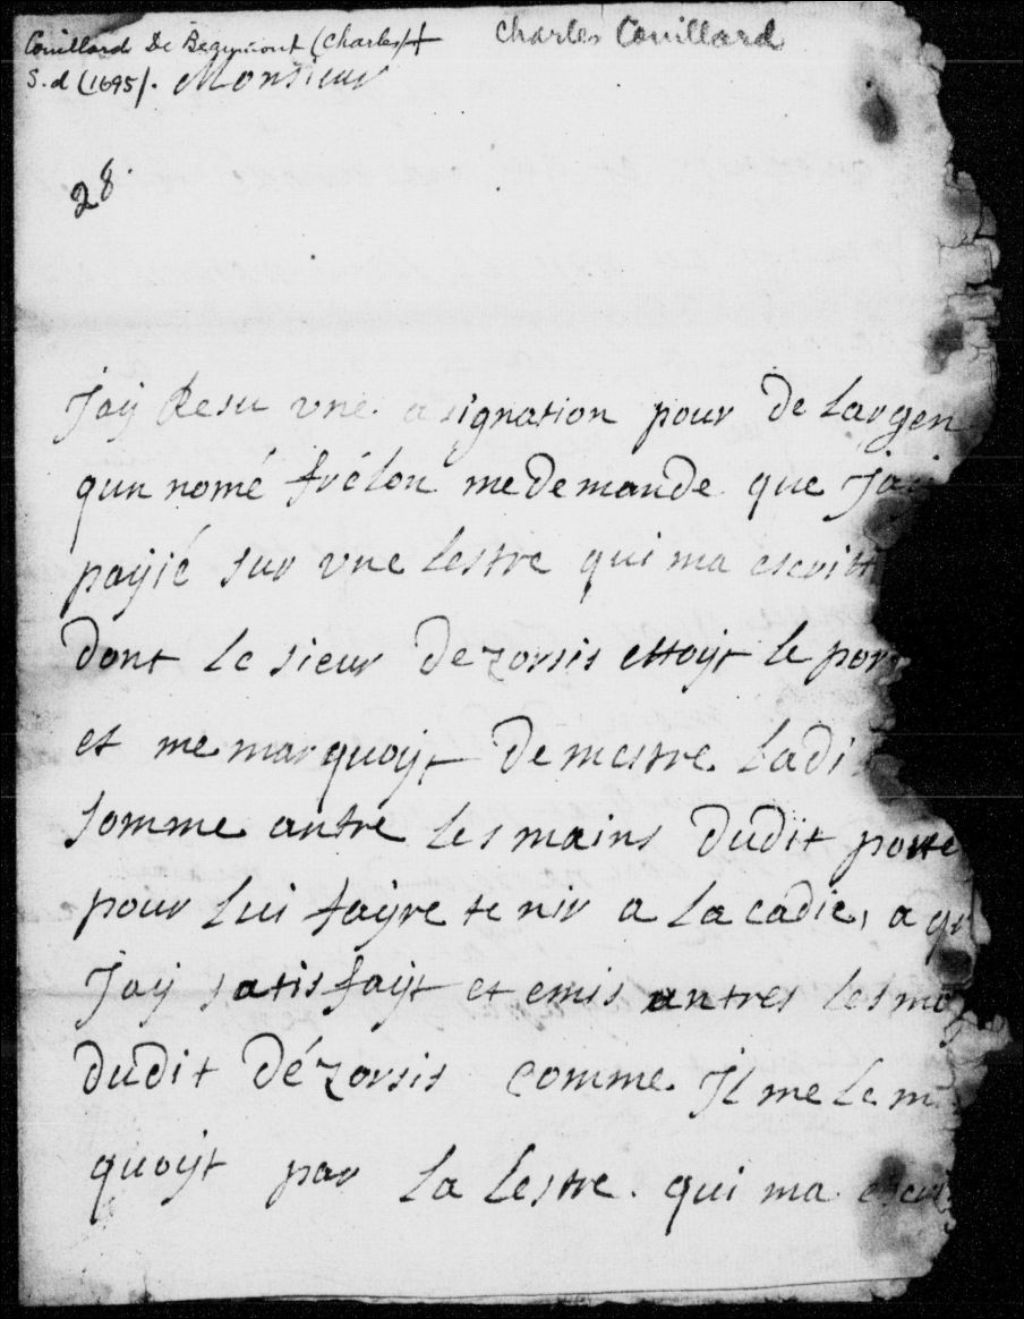 Couillard De Beaumont (Charles) Charles Couillard
S.d (1695). Monsieur
28.
Jay Resu vne asignation pour de Largen
qun nomé frélon me demande que Jai
payié sur vne Lestre qui ma escritt
dont le sieur dezorsis ettoyt le por
et me marquoyt de mestre Ladi
somme antre les mains dudit porte
pour Lui fayre tenir a Lacadie, a qu
Jay satisfayt et emis antres les ma
dudit dézorsis comme Il me Le m
quoyt par La Lestre qui ma escri